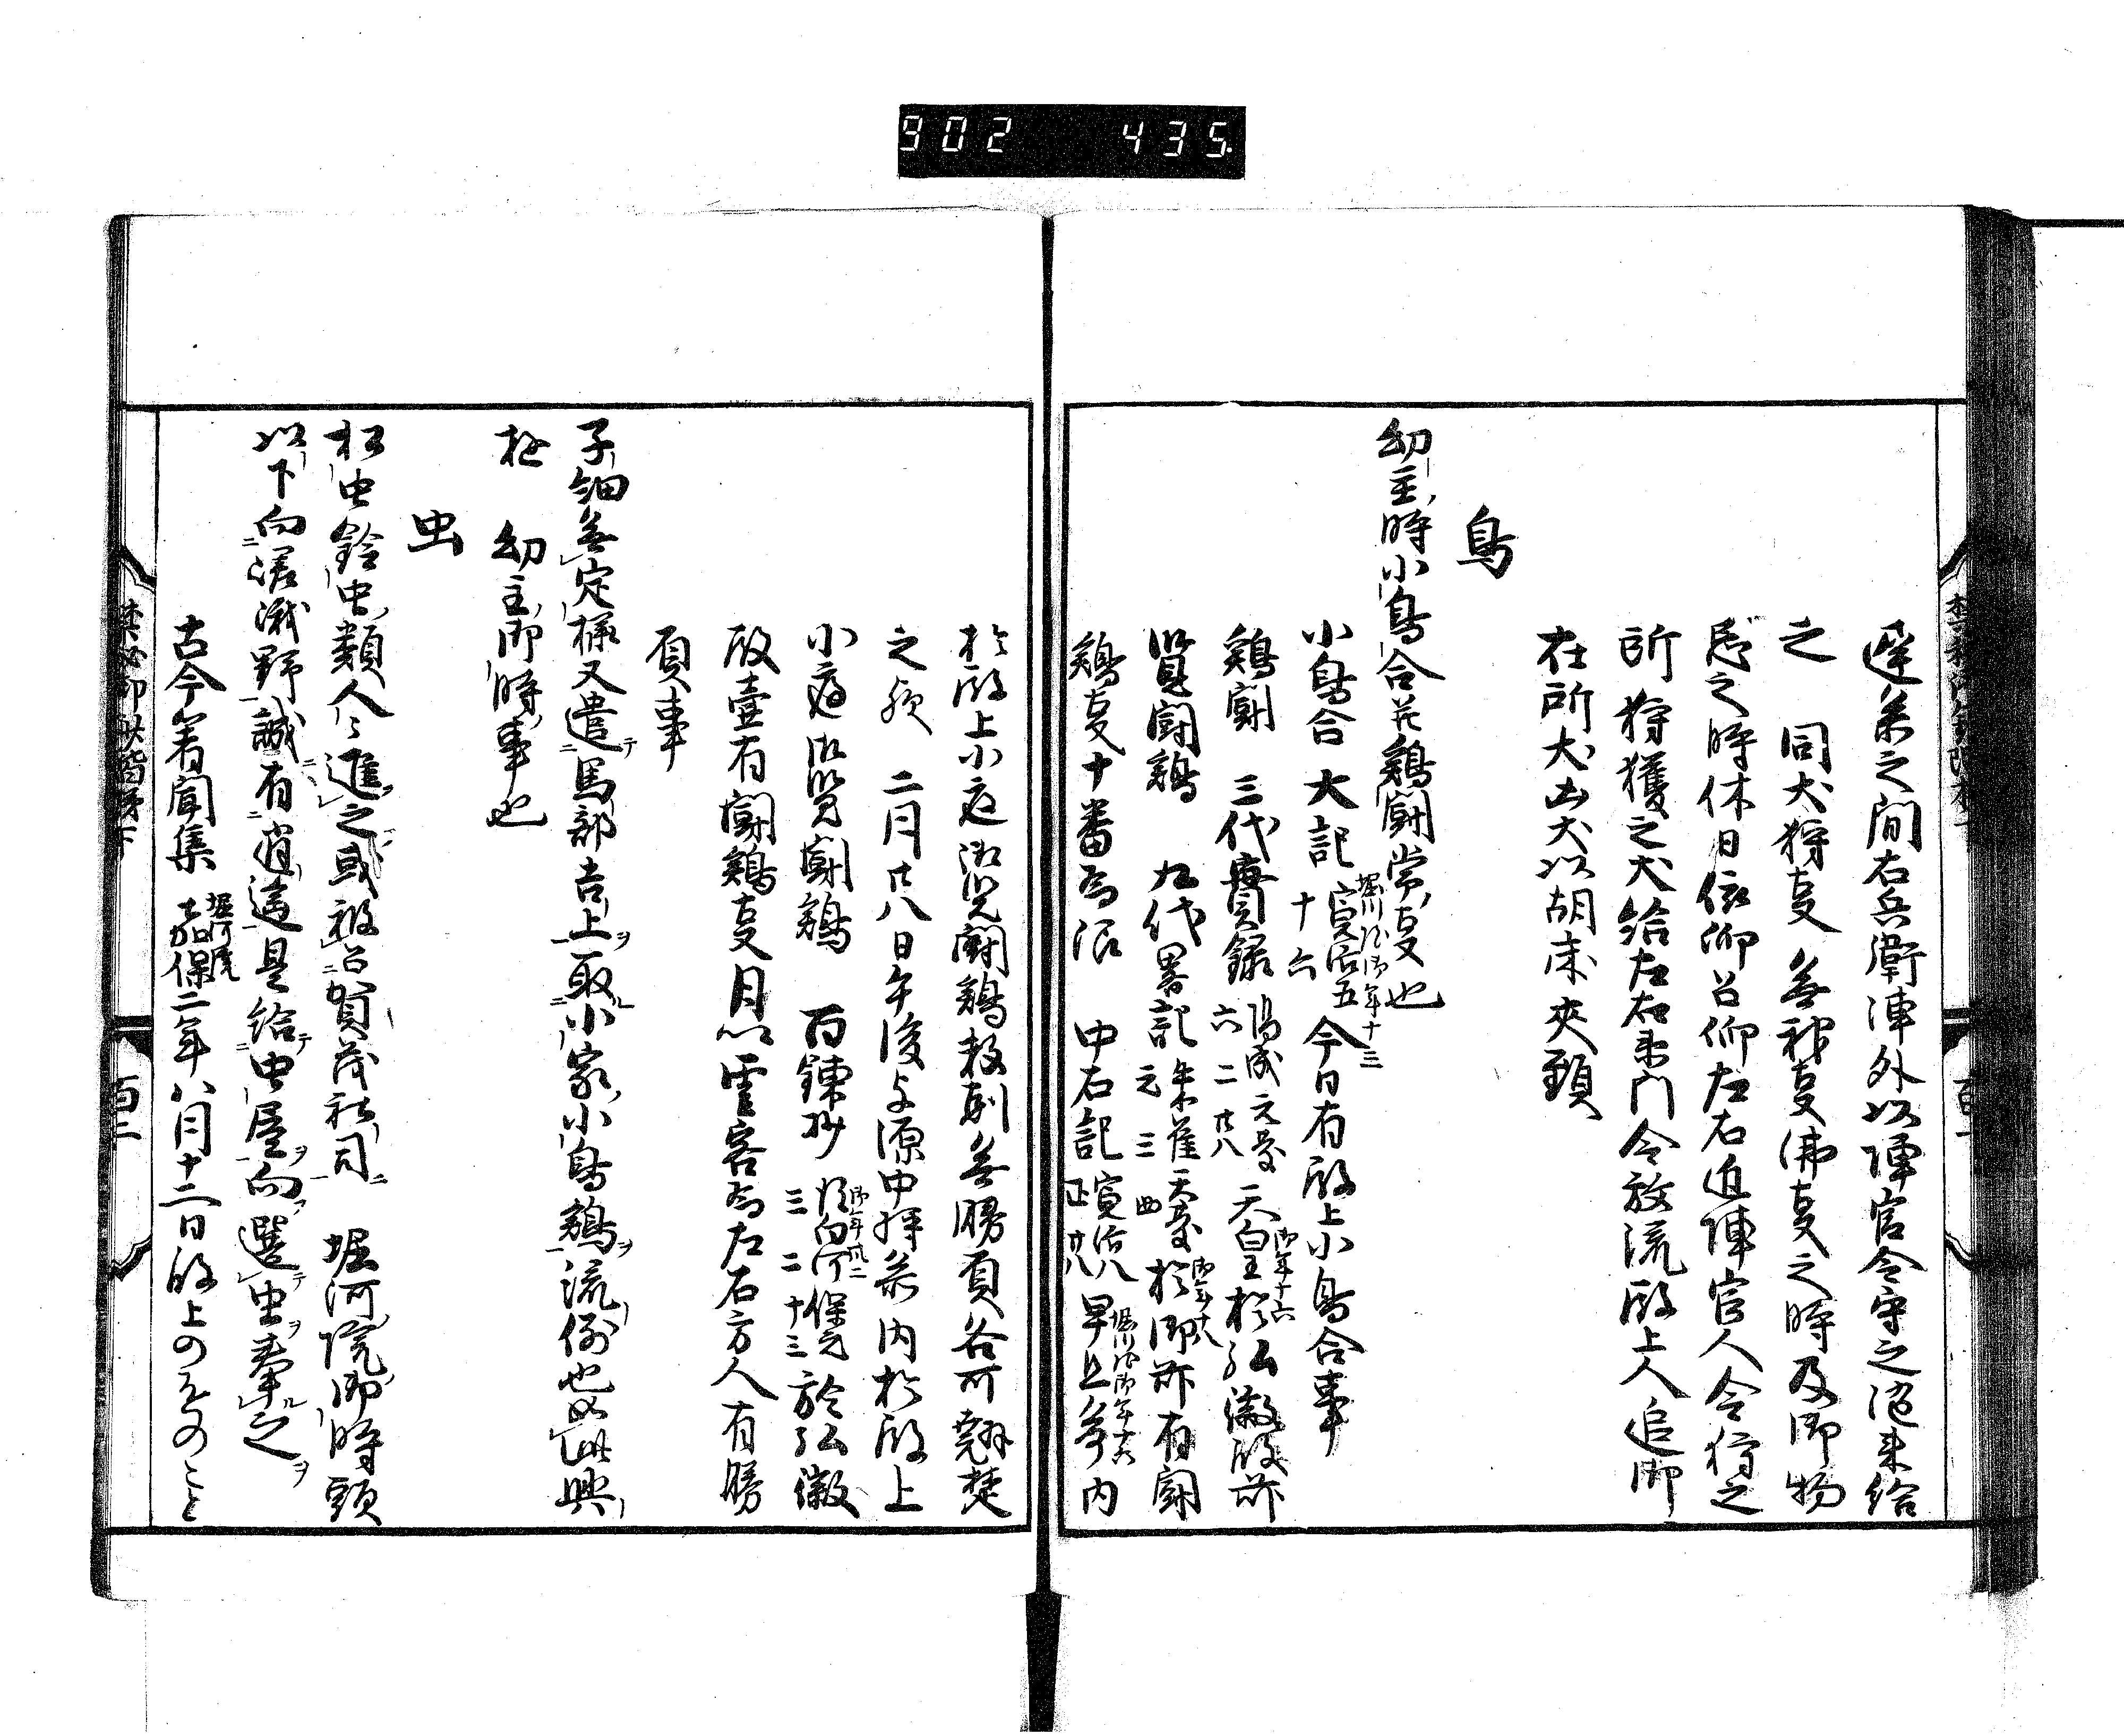 902 435.
遅参之間右兵衛陣外以陣官令守之随来給
之 同犬狩事 無神事佛事之時及御物
忌之時休日依仰召仰左右近陣官人令狩之
所狩獲之犬給左右衛門令放流殿上人追御
在所犬出犬以胡床夾頸
鳥
幼主時小鳥合并鷄闘常事也
小鳥合 大記 寛治五 十 六 堀川院御年十三 今日有殿上小鳥合事
鷄闘 三代實録 陽成元慶 六 二 廿八 天皇 御年十六 於弘徽殿前
覧闘鷄 九代畧記 朱雀天慶 元 三 四 御年十六 於御前有闘
鷄事十番為限 中右記 寛治八 正 廿八 堀川院御年十六 早旦参内
於殿上小庭御覧闘鷄数刻無勝負各所翹楚
之歟 二月廿八日午後与源中将参内於殿上
小庭御覧闘鷄 百錬抄 後白河保元 三 二 十三 御年卅二 於弘徽
殿壷有闘鷄事月卿雲客為左右方人有勝
負事
子細無定様又遣馬部吉上取小家小鳥鷄流例也如此興
遊 幼主御時事也
虫
松虫鈴虫類人々進之或被召賀茂社司 堀河院御時頭
以下向嵯峨野誠有逍遥是給虫屋向選虫奉之
古今著聞集 堀河院 嘉保二年八月十二日殿上のをのこと
禁秘御抄階梯下
百一
禁秘御抄階梯下
百二